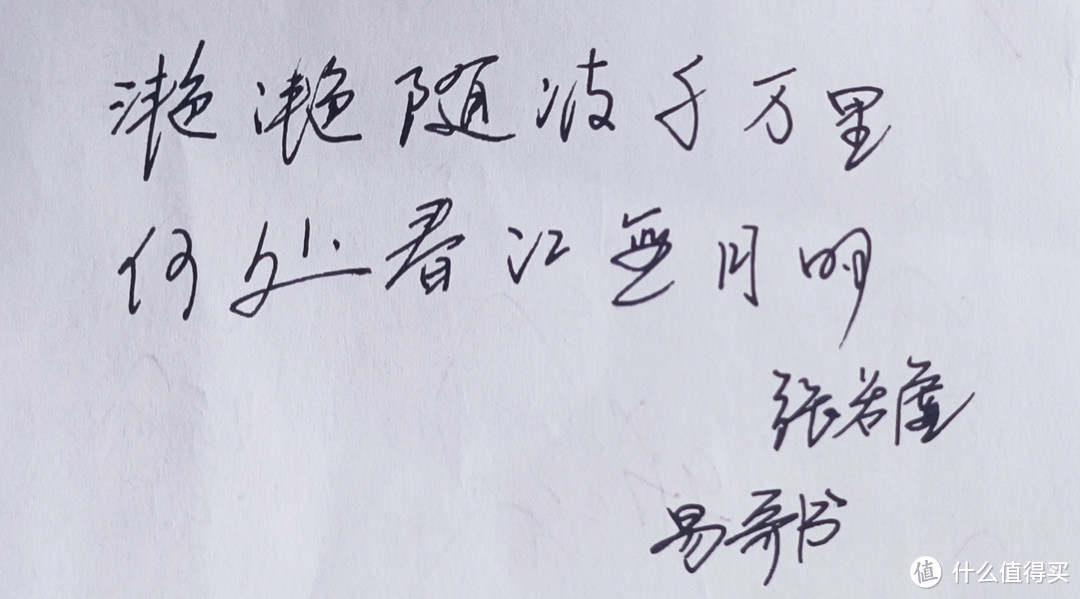 滟滟随波千万里
何处春江無月明
张若虚
易哥书
值 什么值得买